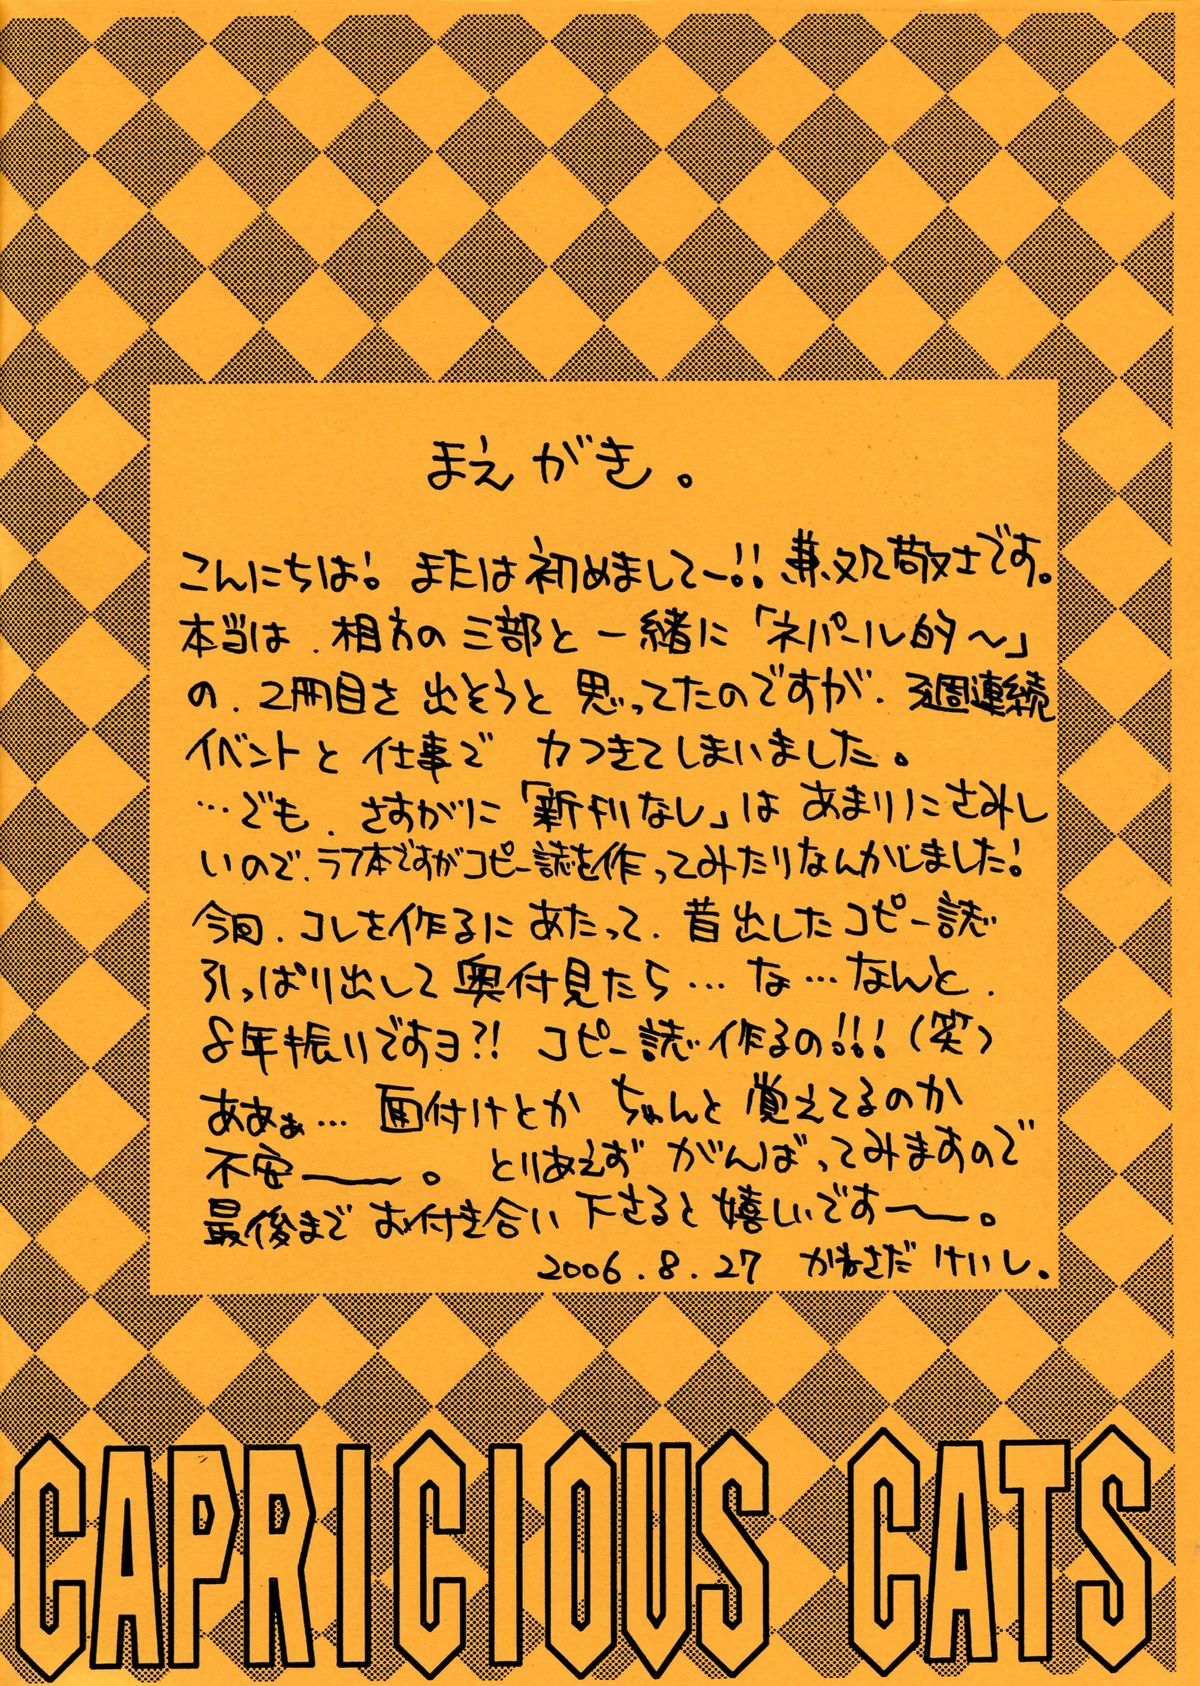 まえがき。
こんにちは!または初めましてー!!兼処敬士です。
本当は、相方の三部と一緒に「ネパール的〜」
の、2冊目を出そうと思ってたのですが、3週連続
イベントと仕事で力つきてしまいました。
…でも、さすがに「新刊なし」はあまりにさみし
いので、ラフ本ですがコピー誌を作ってみたりなんかしました!
今回、コレを作るにあたって、昔出したコピー誌
引っぱり出して奥付見たら…な…なんと、
8年振りですヨ?!コピー誌作るの!!!(笑)
あぁぁ…面付けとかちゃんと覚えてるのか
不安――。とりあえずがんばってみますので
最後までお付き合い下さると嬉しいです〜。
2006.8.27 かねさだけいし。
CAPRICIOUS CATS